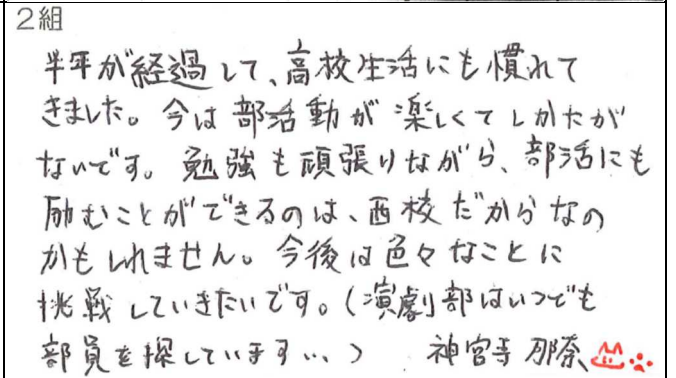 2組
半年が経過して、高校生活にも慣れて
きました。今は部活動が楽しくてしかたが
ないです。勉強も頑張りながら、部活にも
励むことができるのは、西校だからなの
かもしれません。今後は色々なことに
挑戦していきたいです。(演劇部はいつでも
部員を探しています…) 神宮寺 那奈